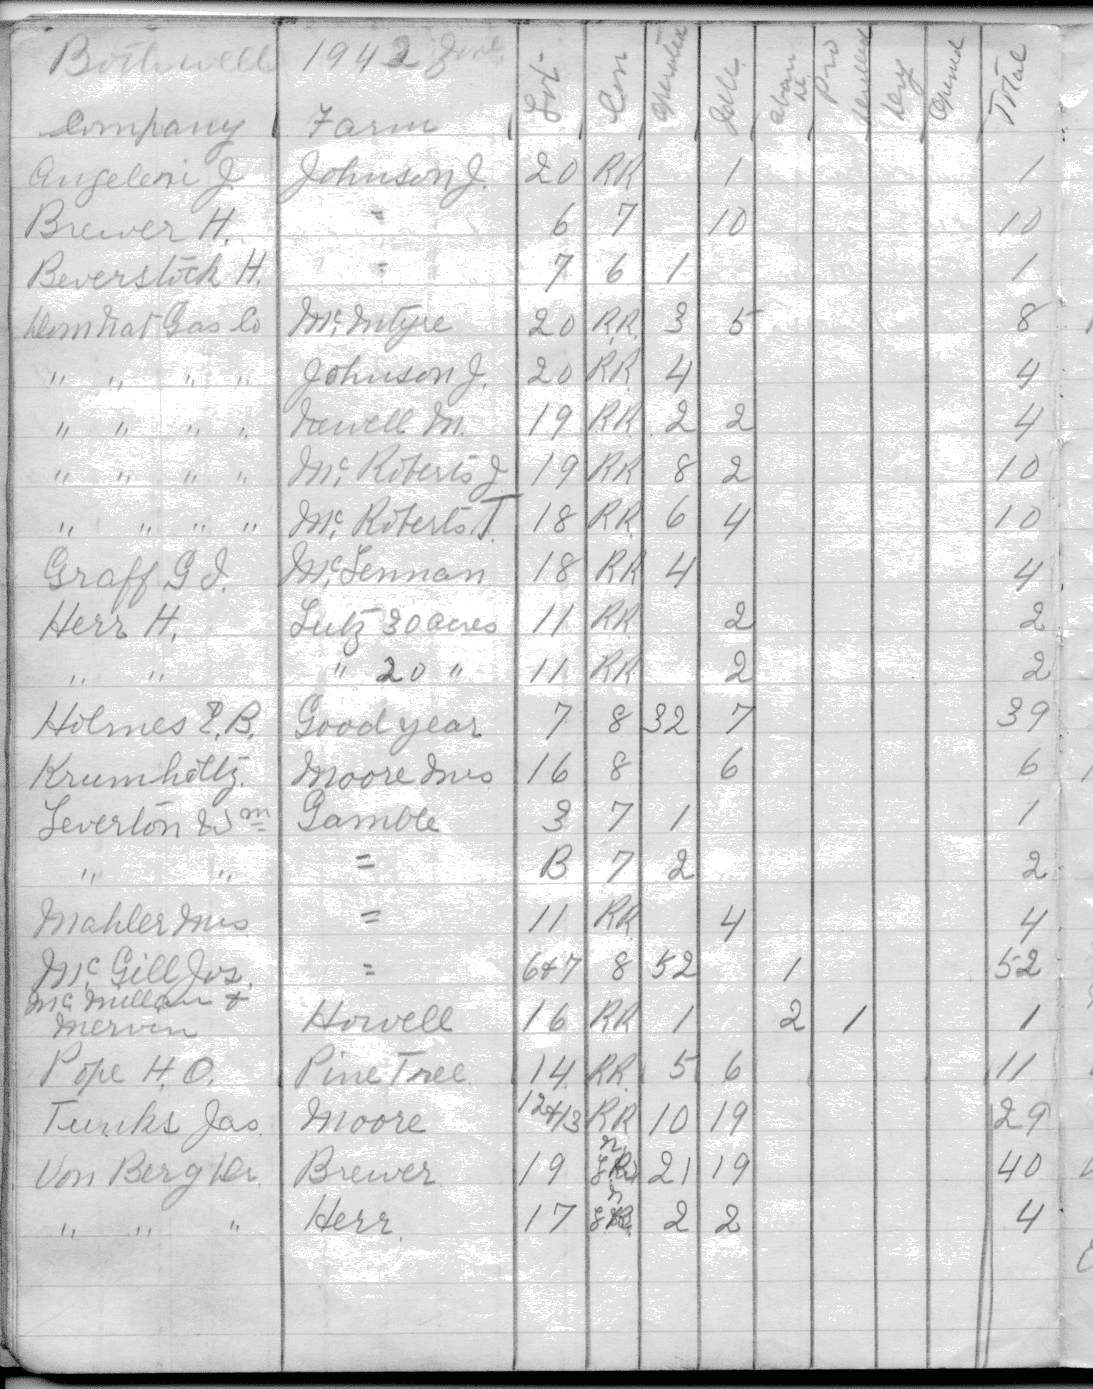 Bothwell 1942 June
Company Farm Lot Con Operated Idle Aban Pro Drilled Dry Opened Total
Angeleri J. Johnson J. 20 RR 1 1
Brewer H. = 6 7 10 10
Beverstock H. = 7 6 1 1
Dom Nat Gas Co Mc Intyre 20 R.R. 3 5 8
" " " " Johnson J. 20 RR. 4 4
" " " " M. 19 RR 2 2 4
" " " " Mc Roberts J 19 RR 8 2 10
" " " " Mc Roberts T. 18 RR. 6 4 10
Graff G J. Mc Lennan 18 RR 4 4
Herr H. Lutz 30 acres 11 RR. 2 2
" " " 20 " 11 RR 2 2
Holmes E. B. Good year 7 8 32 7 39
Krumholtz. Moore Mrs 16 8 6 6
Leverton Wm Gamble 3 7 1 1
" " = B 7 2 2
Mahler Mrs = 11 RR. 4 4
Mc Gill Jos. = 6+7 8 52 1 52
Mc Millan +
Mervin Howell 16 RR 1 2 1 1
Pope H. O. Pine Tree 14 RR. 5 6 11
Tunks Jas. Moore 12+13 RR 10 19 29
Von Berg Dr. Brewer 19 21 19 40
" " " Herr. 17 2 2 4